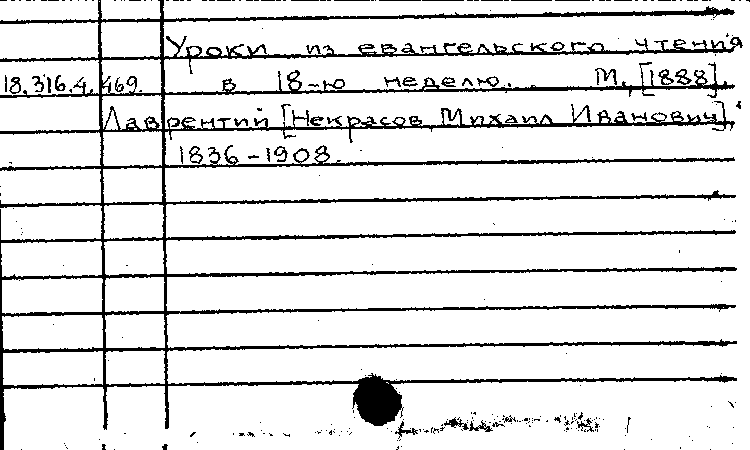 Уроки из евангельского чтения
18.316.4.469. в 18-ю неделю. М., [1888].
Лаврентий [Некрасов Михаил Иванович],
1836-1908.